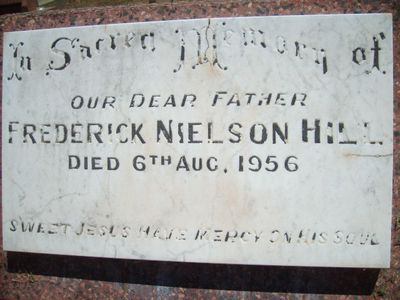 In Sacred Memory of
OUR DEAR FATHER
FREDERICK NIELSON HILL
DIED 6TH AUG, 1956
SWEET JESUS HAVE MERCY ON HIS SOUL